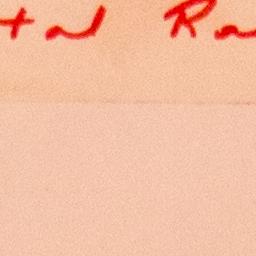 tal Ra